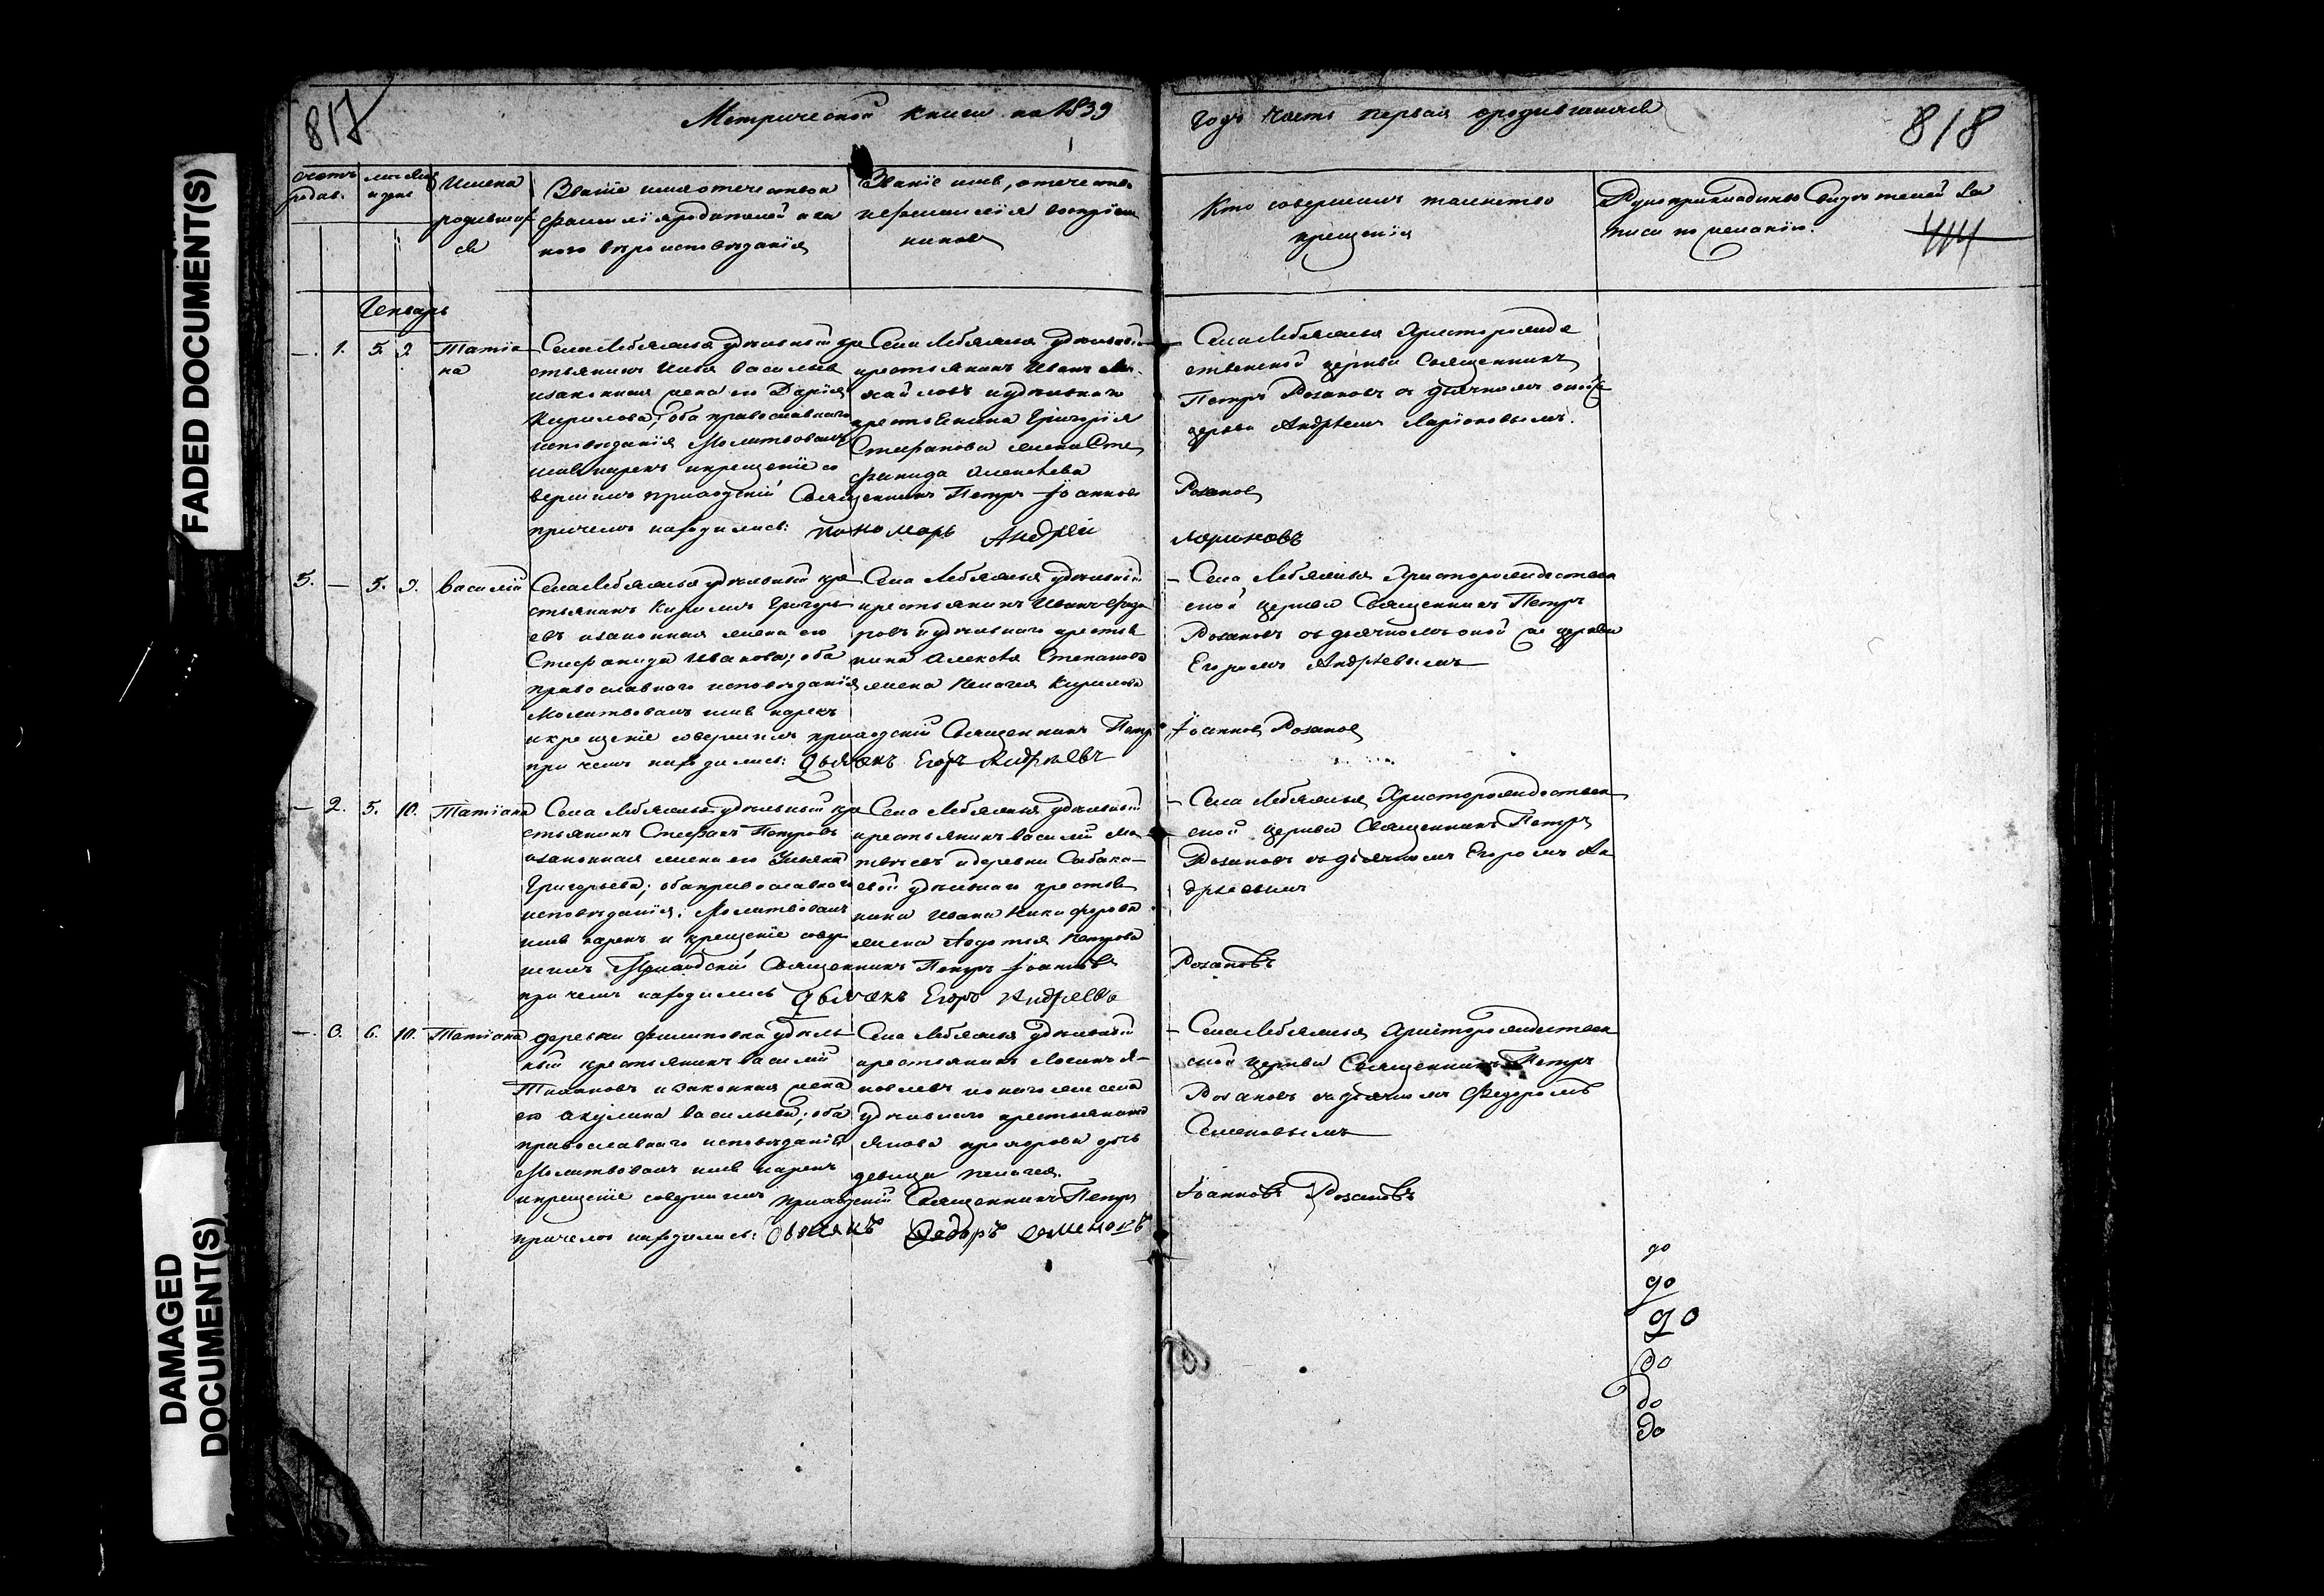 FADED DOCUMENT(S)
DAMAGED
DOCUMENT(S)
817
Метрической книги на 1839
годъ часть первая
818
Имена
родившаг
ся
Званіе имя отечество и
фамилія родителей и ка
кого вѣроисповѣданія
Званіе имя, отечество
и фамилія воспріем
никовъ
Кто совершилъ таинство
крещенія
Рукоприкладство свидетелей за
писи по желанію.
444
Генварь
1. 5. 7. Татіа
на
Села Лебяжья удельный кре
стьянинъ василіев
и законная жена его Дарія
Кирилова; оба православнаго
исповѣданія Молитвовалъ
имя нарекъ и крещеніе со
вершилъ приходскій Священникъ Петръ Іоаннов
причемъ находились: пономарь Андрей
Села Лебяжья удельный
крестьянинъ Иванъ Ми
хайловъ и удельнаго
крестьянина Григорія
Стефанова жена Сте
фанида Алексѣева
Села Лебяжья Христорожде
ственской церкви Священникъ
Петръ Розановъ съ дьячкомъ оной
церкви Андреемъ Ларіоновымъ.
Розанов
лариновъ
5. — 5. 7. Василій
Села Лебяжья удельный кре
стьянинъ Кирилъ Григорь
евъ и законная жена его
Стефанида Иванова; оба
православнаго исповѣданія
Молитвовалъ имя нарекъ
и крещеніе совершилъ приходскій Священникъ Петр
при чемъ находились: дьячекъ Егоръ Андреевъ
Села Лебяжья удельный
крестьянинъ Иванъ Федо
ровъ и удельнаго крестья
нина Алексѣя Степанова
жена Пелагея Кирилова
Села Лебяжья Христорождествен
ской церкви Священникъ Петръ
Розановъ съ дьячкомъ оной же церкви
Егоромъ Андреевымъ
Іоаннов Розанов
— 2. 5. 10. Татіана
Села Лебяжья удельный кре
стьянинъ Стефанъ Петровъ
и законная жена его Ульяна
Григорьева; оба православнаго
исповѣданія; Молитвовалъ
имя нарекъ и крещеніе совер
шилъ Приходскій Священникъ Петръ Іоанновъ
при чемъ находились дьячекъ Егоръ Андреевъ
Села Лебяжья удельный
крестьянинъ василій Ма
твѣевъ и деревни Сабака
евой удельнаго крестья
нина Ивана Никифорова
жена Авдотья Петрова
Села Лебяжья Христорождествен
ской церкви Священникъ Петръ
Розановъ съ дьячкомъ Егоромъ Ан
дреевымъ
Розановъ
— 3. 6. 10. Татіана
деревни Филиповка удель
ный крестьянинъ василій
и законная жена
его акулина васильева; оба
православнаго исповѣданія
Молитвовалъ имя нарекъ
и крещеніе совершилъ приходскій Священникъ Петръ
причемъ находились: дьячекъ Федоръ семеновъ
Села Лебяжья удельный
крестьянинъ Я
ковлевъ и того же села
удельнаго крестьянина
Якова дочь
девица Пелагея.
Села Лебяжья Христорождествен
ской церкви Священникъ Петръ
Розановъ съ дьячкомъ Федоромъ
Семеновымъ
Іоанновъ Розановъ
до
до
до
до
до
до